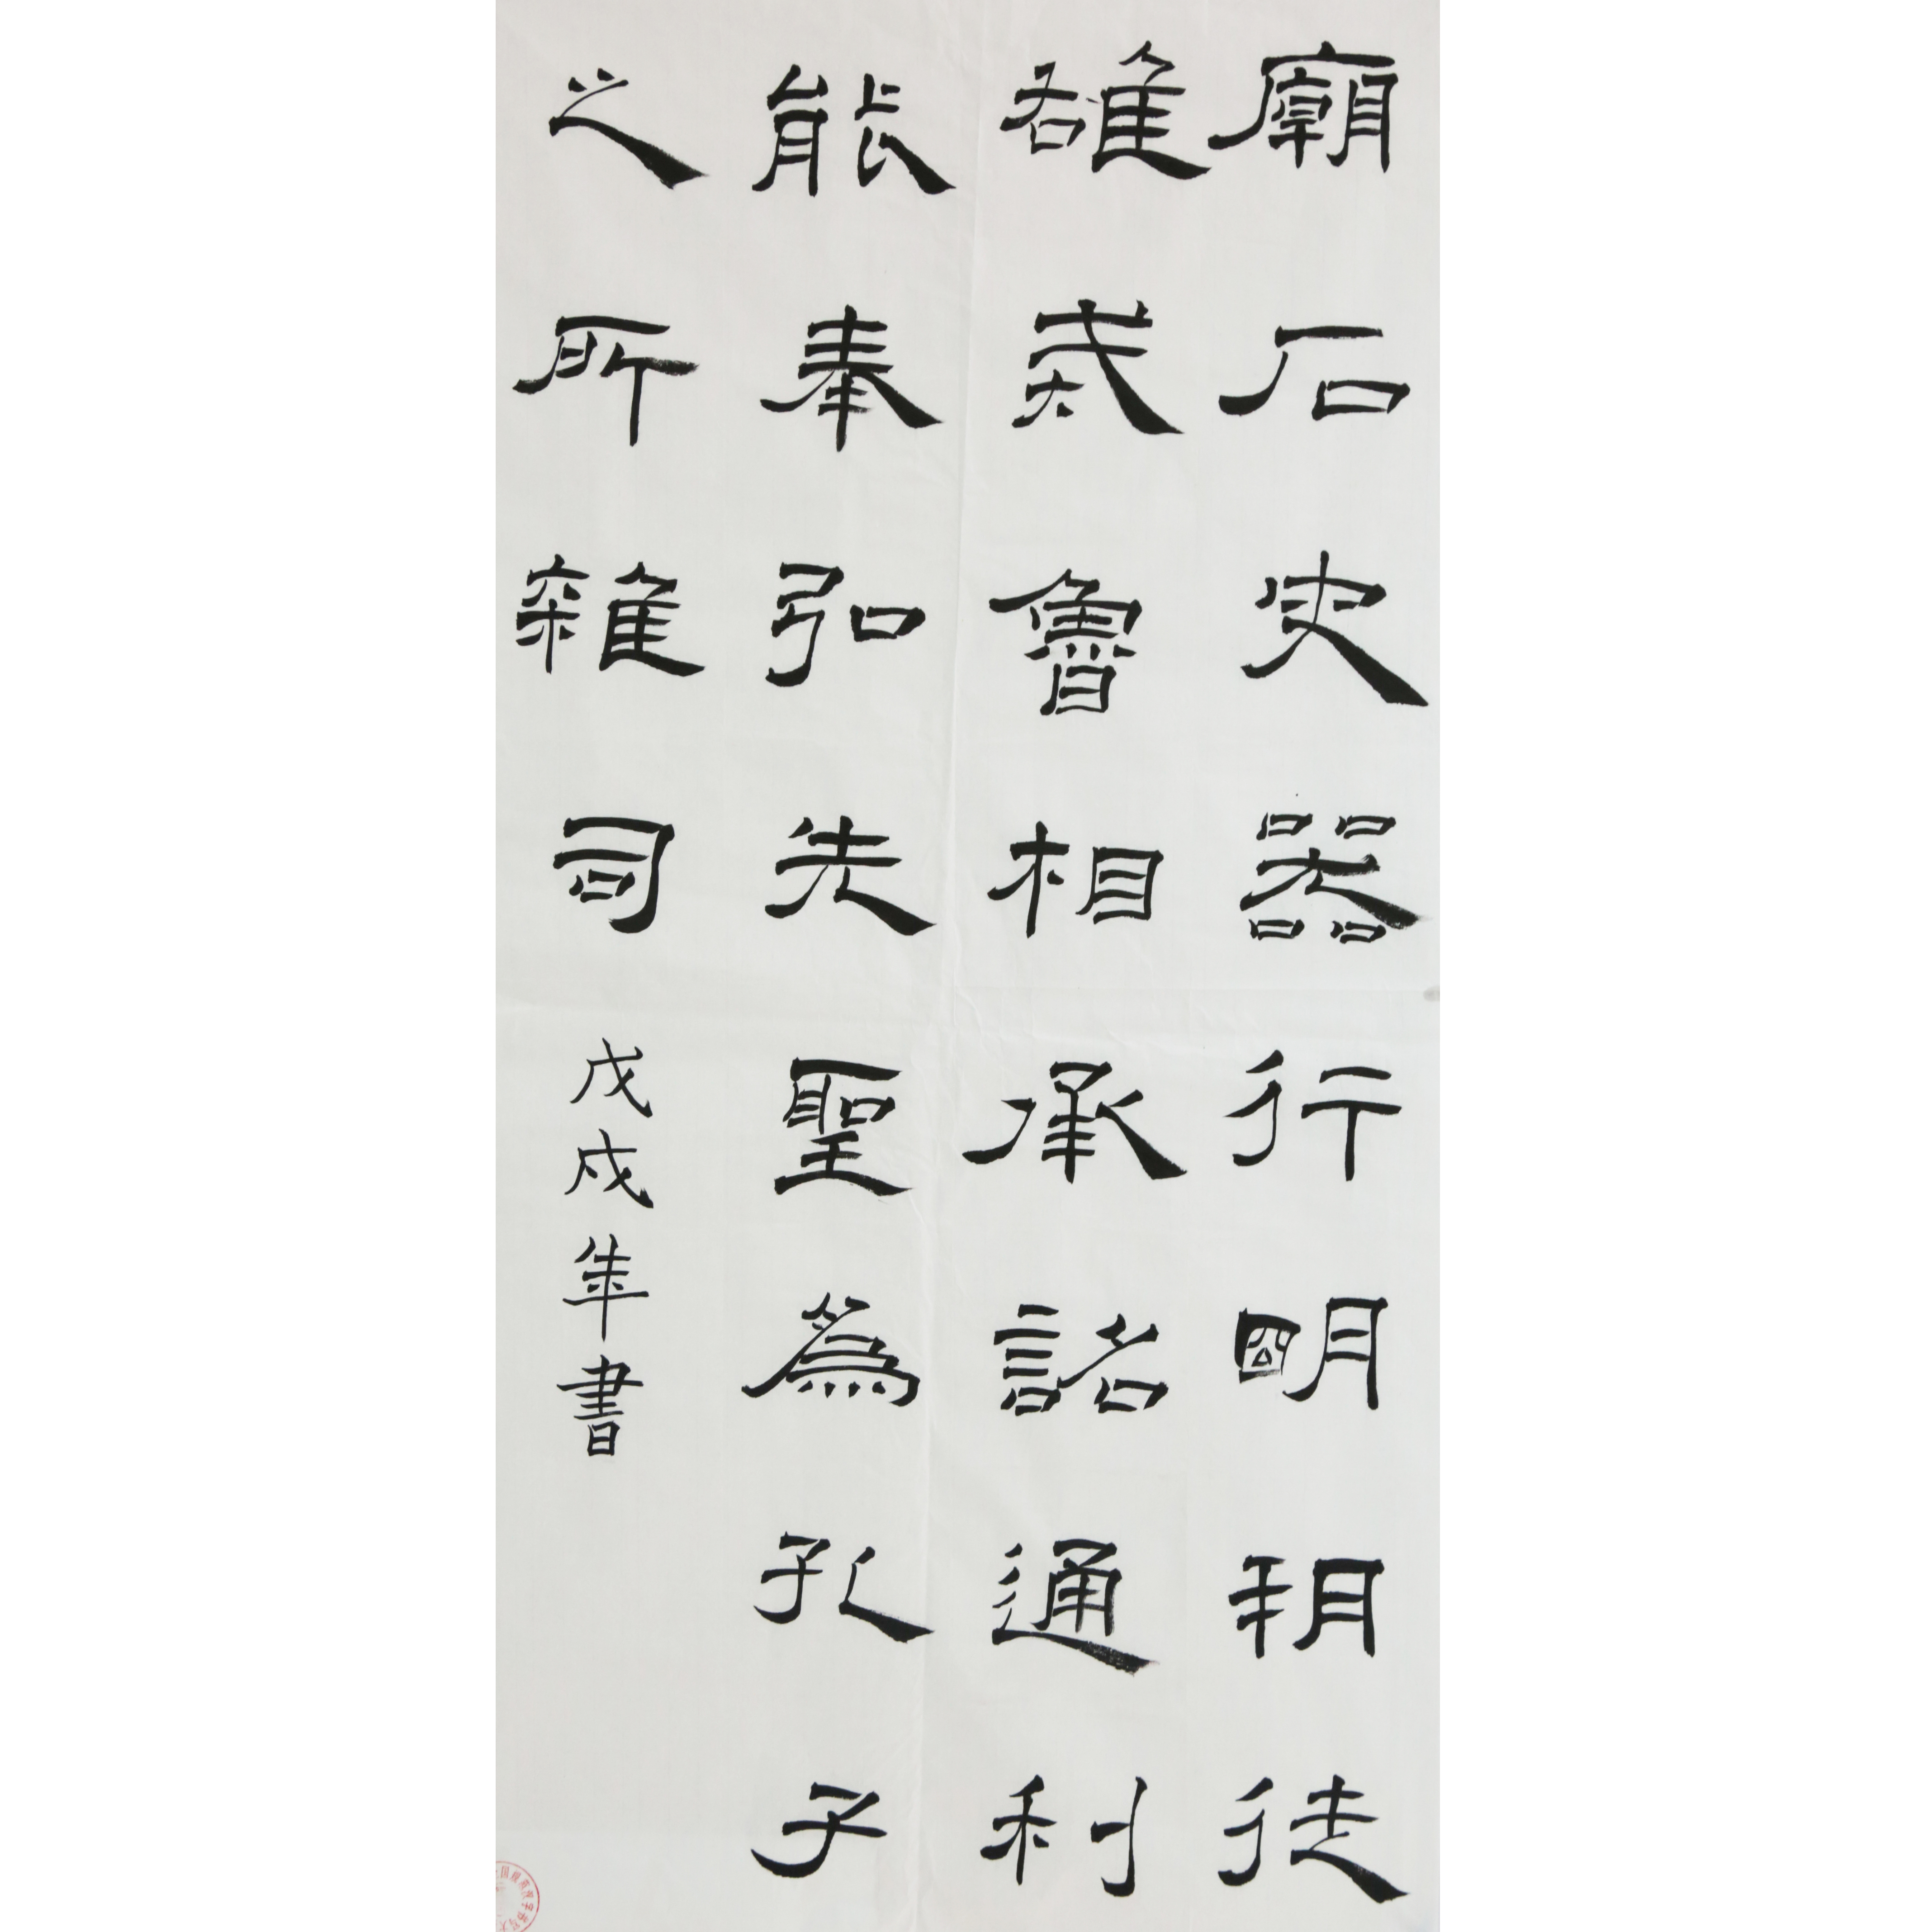 廟石史器行明玥徒
雄戎魯相承諾通利
能奉弘先聖為孔子
之所雜司
戊戌年書